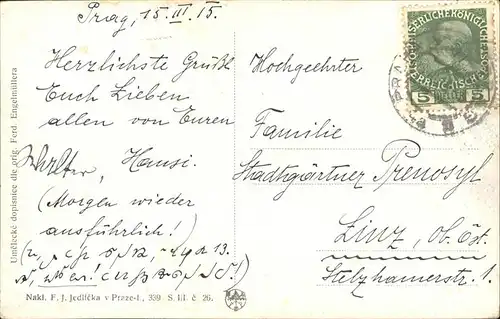 Prag, 15. III. 15.
Herzlichste Grüße
Euch Lieben
allen von Euren
Walter, Hansi.
(Morgen wieder
ausführlich!)
13.
Hochgeehrter
Familie
Stadtgärtner Prenosyl
Linz, ob. Öst.
Stelzhamerstr. 1.
5 5
Umělecké dopisnice dle orig. Ferd. Engelmüllera
Nakl. F. J. Jedlička v Praze-I., 339 S. III. č 26.